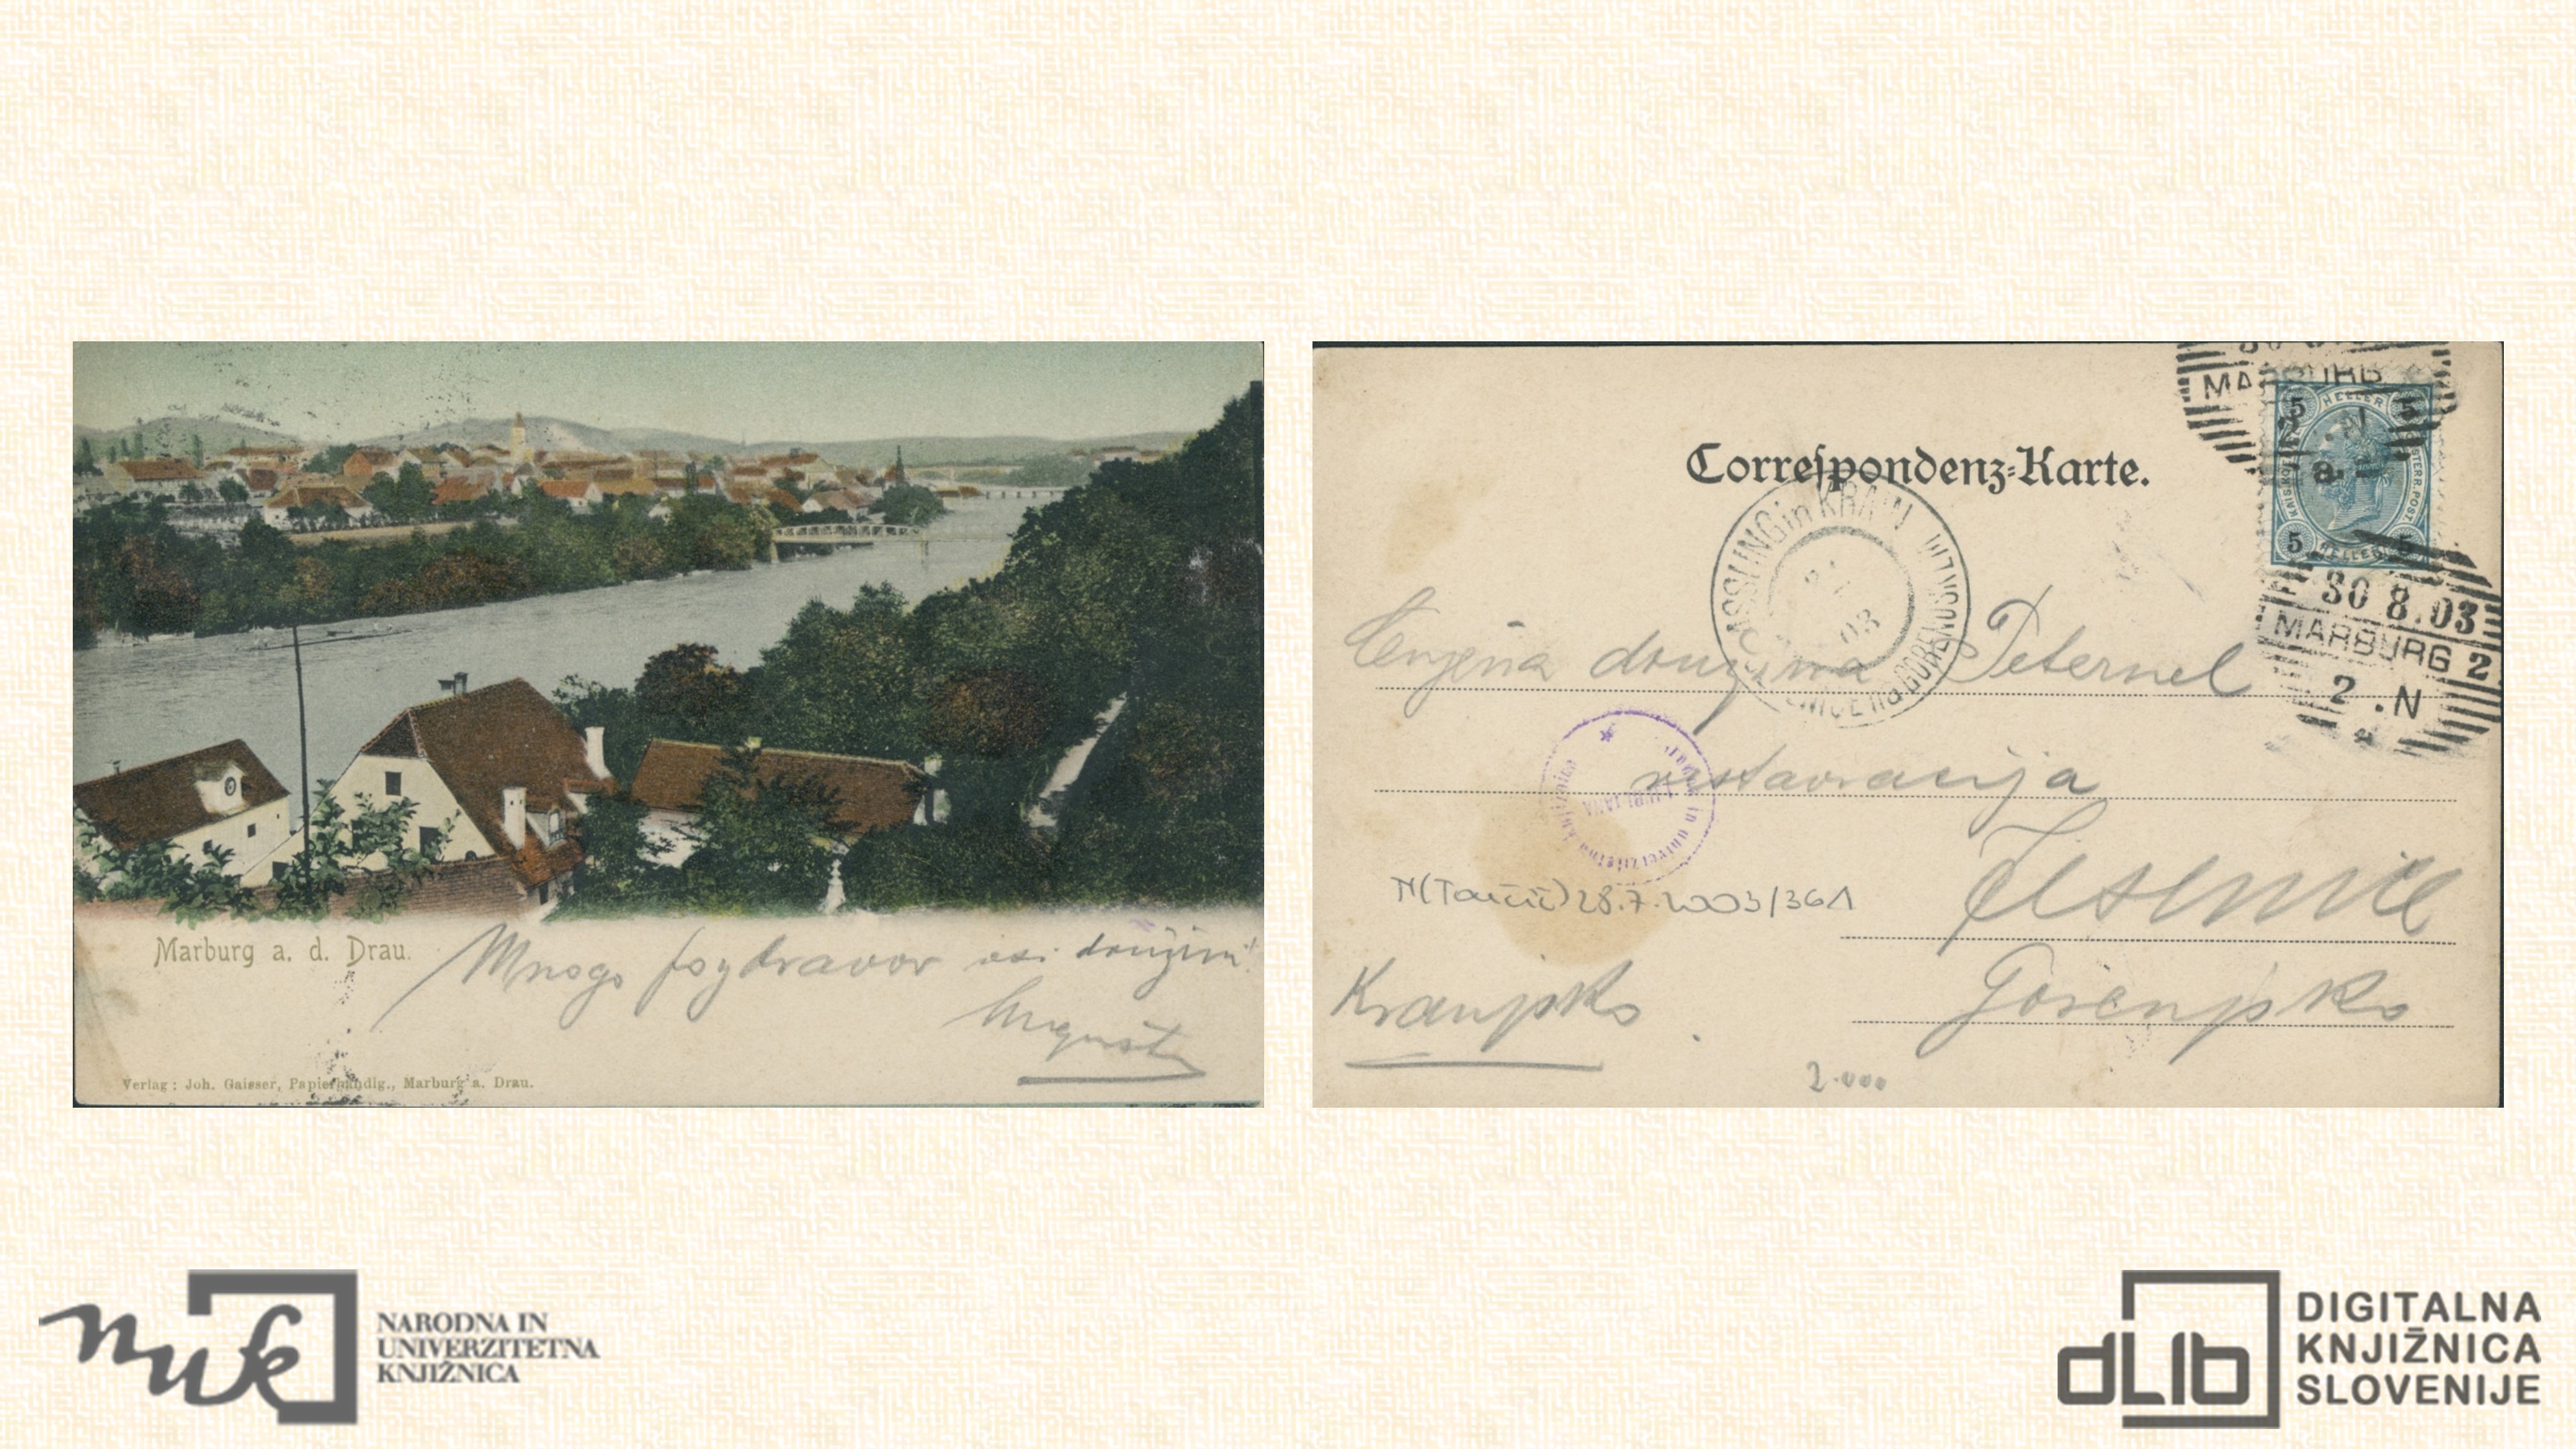 Marburg a. d. Drau.
Mnogo pozdravov vsi družini!
August
Verlag: Joh. Gaisser, Papierhandlg., Marburg a. Drau.
Correspondenz-Karte.
5 HELLER 5
5 HELLER
30 8.03
MARBURG 2
2 .N
ASSLING in KRAIN
na GORENJSKEM
03
Cenjena družina Peternel
restavracija
Jesenice
Gorenjsko
Kranjsko
Narodna in univerzitetna knjižnica
LJUBLJANA
28.7.2003/361
2.000
nuk
NARODNA IN
UNIVERZITETNA
KNJIŽNICA
dLib
DIGITALNA
KNJIŽNICA
SLOVENIJE